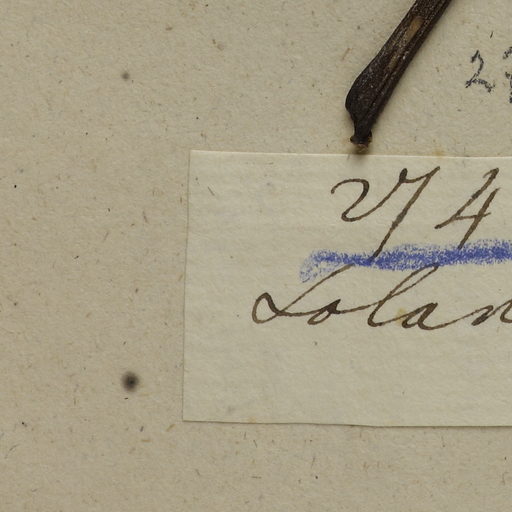 27
274
Solan